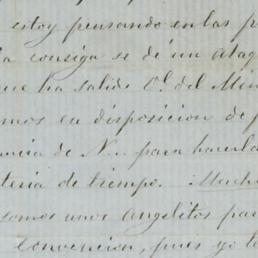 estoy pensando en las p
la consiga se dé un ataq
que ha salido Ol. del Min
mos en disposicion de p
ancia de N... para hacerla
teria de tiempo. Mucho
somos unos angelitos par
Convencion, pues yo te